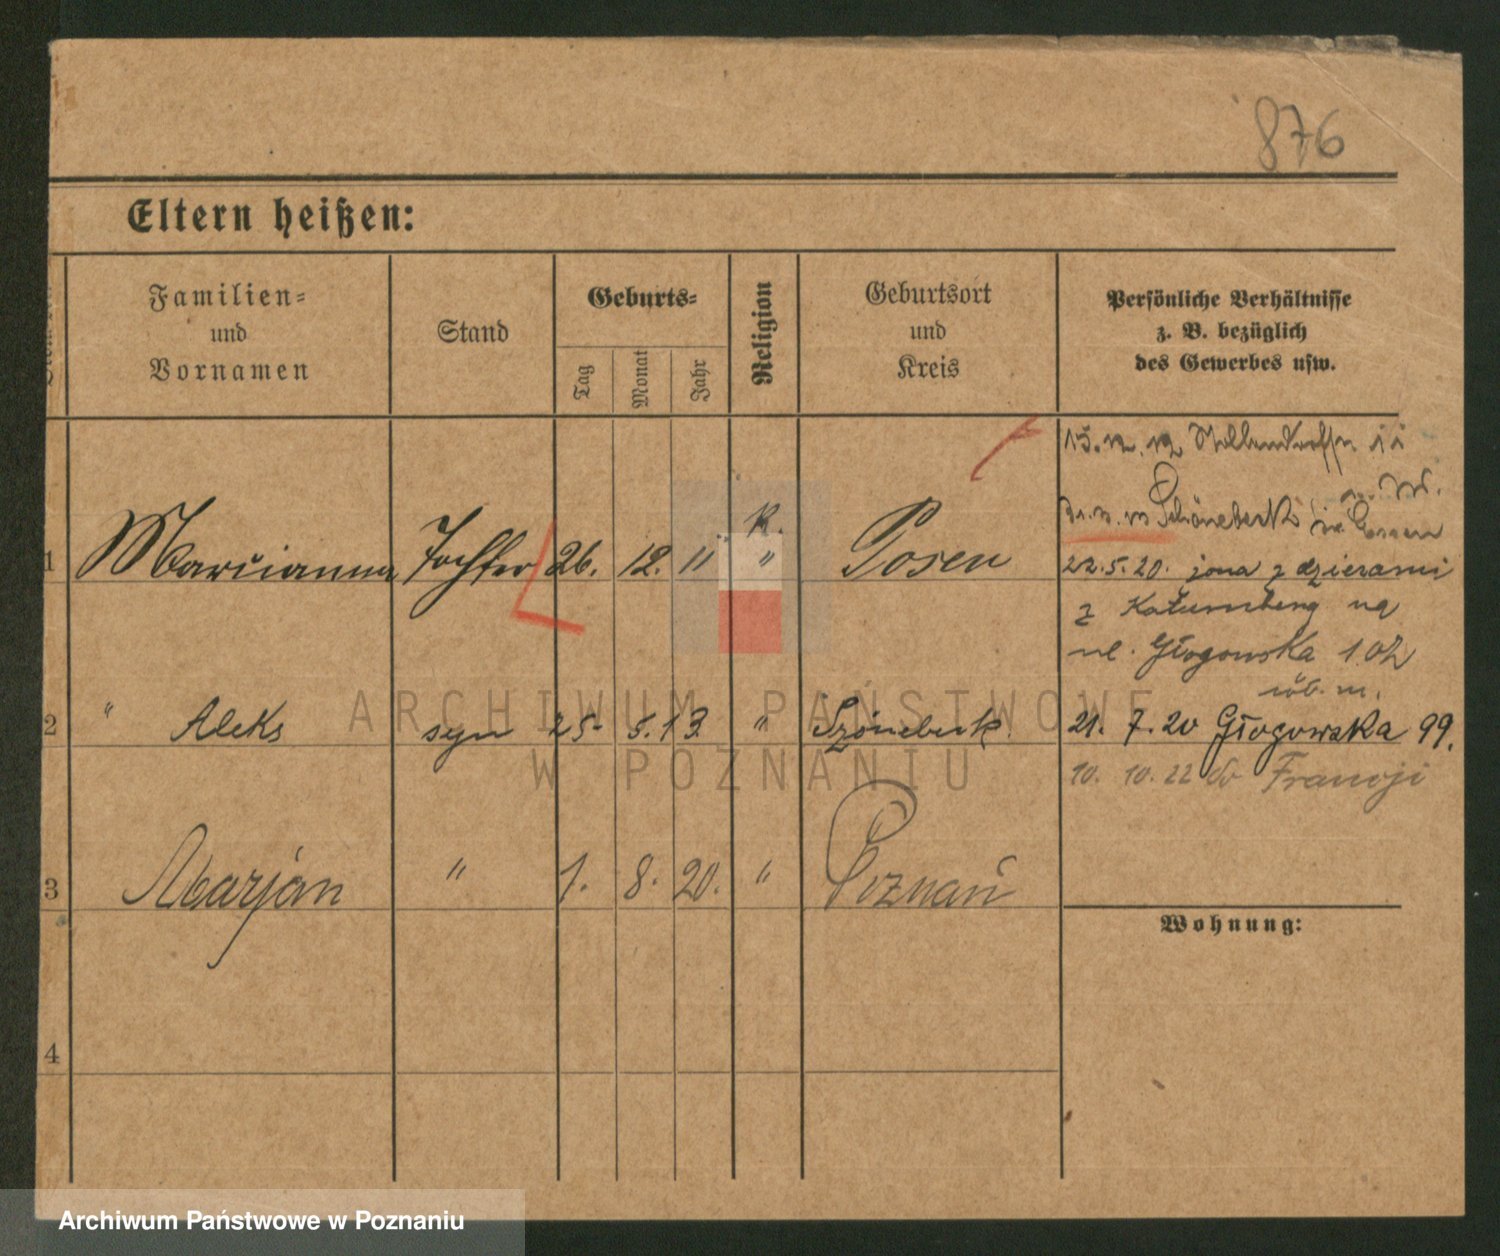 876
Eltern heißen:
Familien-
und
Vornamen
Stand
Geburts-
Tag
Monat
Jahr
Religion
Geburtsort
und
Kreis
Persönliche Verhältnisse
z. B. bezüglich
des Gewerbes usw.
15. 12. 12
k.
Schöneberk
1 Marcianna Tochter 26. 12. 11 " Posen
22. 5. 20. żona z dziećmi
z na
ul. Głogowska 102
2 " Aleks syn 25. 5. 13. " Szönebeck
21. 7. 20 Głogowska 99.
10. 10. 22 do Francji
3 Marjan " 1. 8. 20. " Poznań
Wohnung:
4
ARCHIWUM PAŃSTWOWE
W POZNANIU
Archiwum Państwowe w Poznaniu